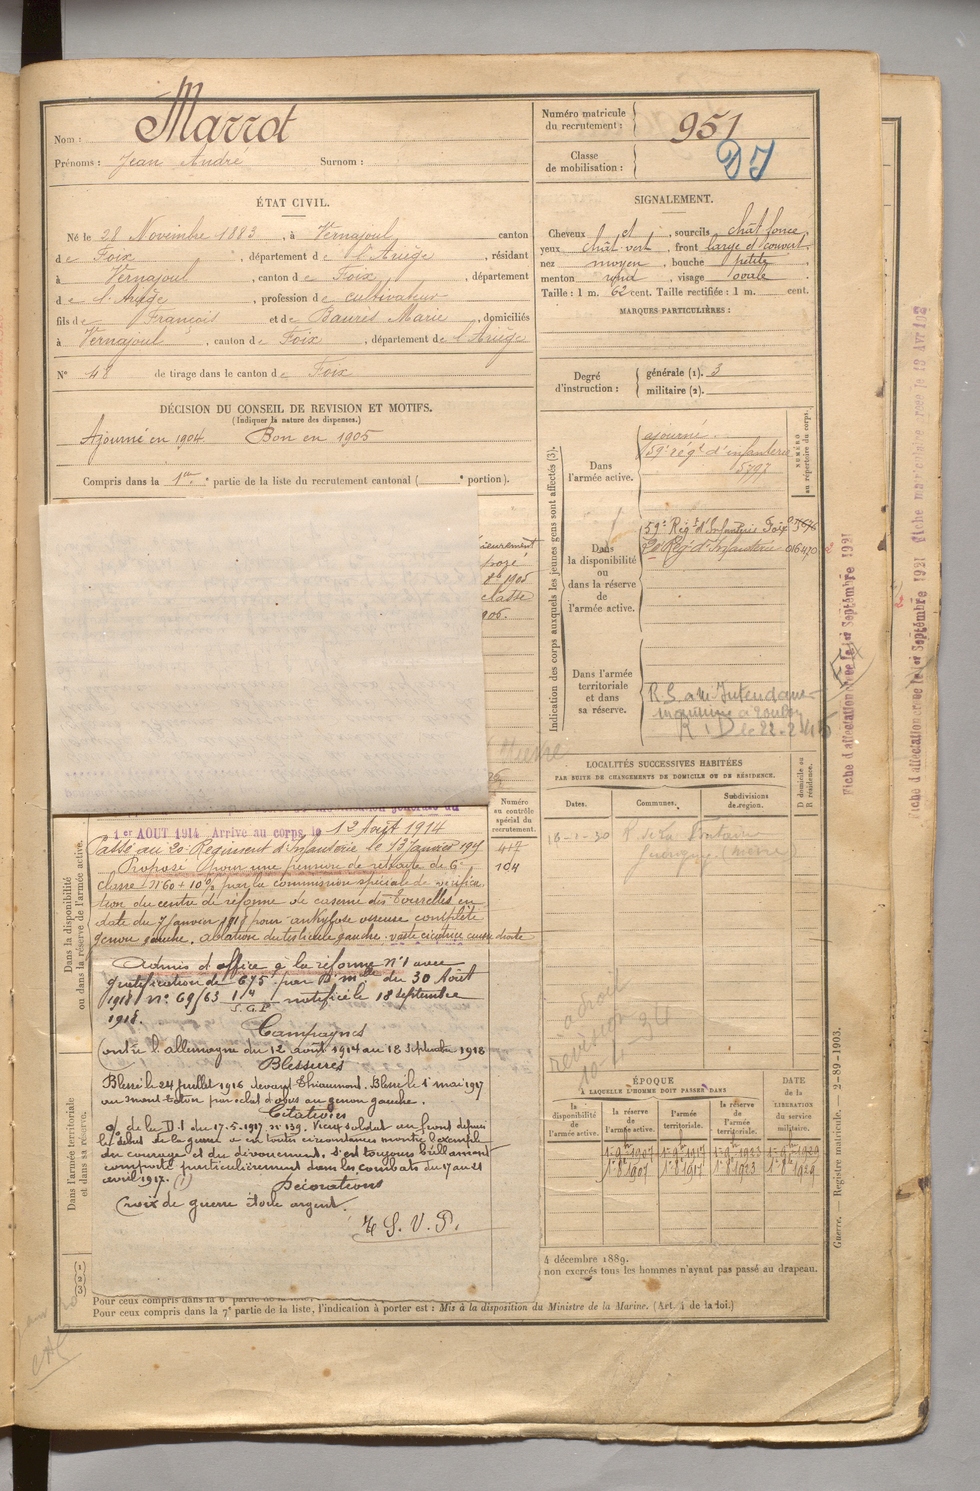 Nom : Marrot
Prénoms : Jean André Surnom :
Numéro matricule
du recrutement : 951
Classe
de mobilisation :
ÉTAT CIVIL.
Né le 28 Novembre 1883, à Vernajoul canton
de Foix, département de l'Ariège, résidant
à Vernajoul, canton de Foix, département
de l'Ariège, profession de cultivateur
fils de François et de Baurès Marie, domiciliés
à Vernajoul, canton de Foix, département de l'Ariège
N° 48 de tirage dans le canton de Foix
SIGNALEMENT.
Cheveux et, sourcils chât foncé
yeux chât vert, front large et couvert,
nez moyen, bouche petite,
menton rond, visage ovale
Taille : 1 m. 62 cent. Taille rectifiée : 1 m. cent.
MARQUES PARTICULIÈRES :
Degré
d'instruction :
générale (1). 3
militaire (2).
DÉCISION DU CONSEIL DE REVISION ET MOTIFS.
(Indiquer la nature des dispenses.)
Ajourné en 1904 Bon en 1905
Compris dans la 1re partie de la liste du recrutement cantonal ( portion).
Indication des corps auxquels les jeunes gens sont affectés (3).
NUMÉRO
au répertoire du corps.
Dans
l'armée active.
ajourné
59e régt d'infanterie
5797
Dans
la disponibilité
ou
dans la réserve
de
l'armée active.
59e Régt d'Infanterie Foix
Régt d'Infanterie
Dans l'armée
territoriale
et dans
sa réserve.
R.S. à l'Intendance
maritime à Toulon
Fiche d'affectation créée le 1er Septembre 1921
Fiche d'affectation créée le 1er Septembre 1921 Fiche matriculaire
classe
LOCALITÉS SUCCESSIVES HABITÉES
PAR SUITE DE CHANGEMENTS DE DOMICILE OU DE RÉSIDENCE.
Dates. Communes. Subdivisions
de région.
D domicile ou
R résidence.
R. de La Fontaine
Numéro
au contrôle
spécial du
recrutement.
417
104
Dans la disponibilité
ou dans la réserve de l'armée active.
1er AOUT 1914 Arrivé au corps le 12 Août 1914
Passé au 20e Régiment d'Infanterie le 13 janvier 1917
Proposé pour une pension de retraite de 6e
classe par la commission spéciale de vérifica
tion du centre de réforme de caserne des Tourelles en
date du 7 Janvier 1918 pour ankylose osseuse complète
genou gauche. ablation du testicule gauche. vaste cicatrice cuisse droite
Admis d'office à la réforme N°1 avec
gratification de 675 par D. mlle du 30 Août
1918 n° 69/63 notifié le 18 septembre
1918.
Campagnes
Contre l'allemagne du 12 août 1914 au 18 septembre 1918
Blessures
Blessé le 24 juillet 1916 devant Thiaumont. Blessé le 1er mai 1917
au mont Téton par éclat d'obus au genou gauche.
Citations
O/ de la D.I du 17.5.1917 n° 139. Vieux soldat au front depuis
le début de la guerre a en toutes circonstances montré l'exemple
du courage et du dévouement. s'est toujours brillamment
comporté particulièrement dans les combats du 17 au 21
avril 1917. (1)
Décorations
Croix de guerre étoile argent.
T. S. V. P.
Dans l'armée territoriale
et dans sa réserve.
ÉPOQUE
À LAQUELLE L'HOMME DOIT PASSER DANS
la
disponibilité
de
l'armée active.
la réserve
de
l'armée active.
l'armée
territoriale.
la réserve
de
l'armée
territoriale.
DATE
de la
LIBÉRATION
du service
militaire.
1er 8bre 1907 1er 8bre 1917 1er 8bre 1923 1er 8bre 1929
4 décembre 1889.
non exercés tous les hommes n'ayant pas passé au drapeau.
Pour ceux compris dans la 6e partie de la liste,
Pour ceux compris dans la 7e partie de la liste, l'indication à porter est : Mis à la disposition du Ministre de la Marine. (Art. 4 de la loi.)
(1)
(2)
(3)
Guerre. — Registre matricule. — 2-89-1903.